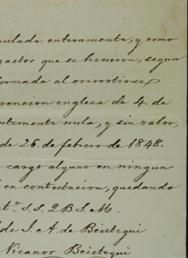 nulado enteramente, y como
gastos que se hicieron, segun
formada al convertirse
vencion inglesa de 4 de
ntemente nula, y sin valor,
de 26 de febrero de 1848.
cargo alguno en ningun
en contestacion, quedando
S.S.Q.B.S.M.
de J. A. de Béistegui
Nicanor Béistegui